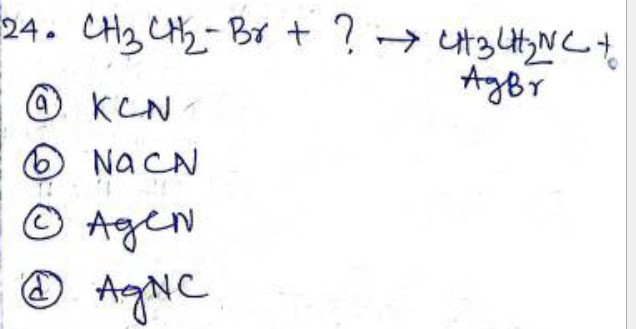 24. CH3CH2-Br + ? → CH3CH2NC +
AgBr
(a) KCN
(b) NaCN
(c) AgCN
(d) AgNC